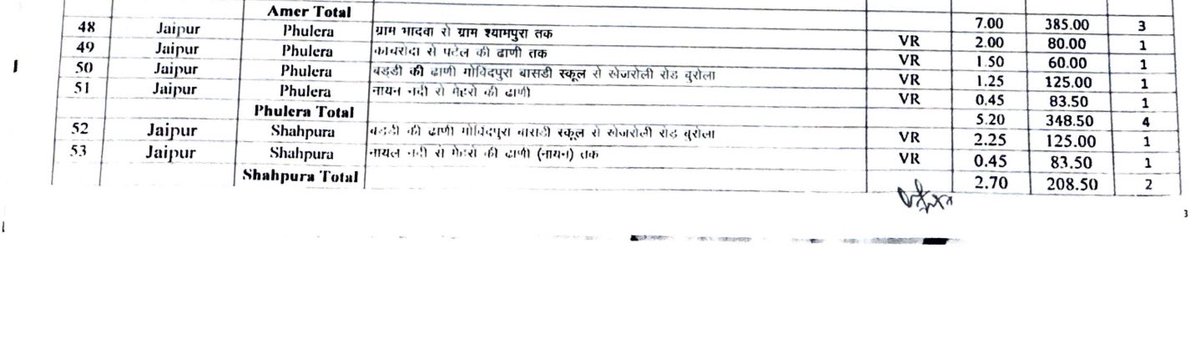 Amer Total 7.00 385.00 3
48 Jaipur Phulera ग्राम भादवा से ग्राम श्यामपुरा तक VR 2.00 80.00 1
49 Jaipur Phulera काचरोदा से पटेल की ढाणी तक VR 1.50 60.00 1
50 Jaipur Phulera बड्डी की ढाणी गोविदपुरा बासडी स्कूल से खेजरोली रोड बुरोला VR 1.25 125.00 1
51 Jaipur Phulera नायन नदी से मेहरो की ढाणी VR 0.45 83.50 1
Phulera Total 5.20 348.50 4
52 Jaipur Shahpura बड्डी की ढाणी गोविदपुरा बासडी स्कूल से खेजरोली रोड बुरोला VR 2.25 125.00 1
53 Jaipur Shahpura नायल नदी से मेहरो की ढाणी (नायन) तक VR 0.45 83.50 1
Shahpura Total 2.70 208.50 2
3